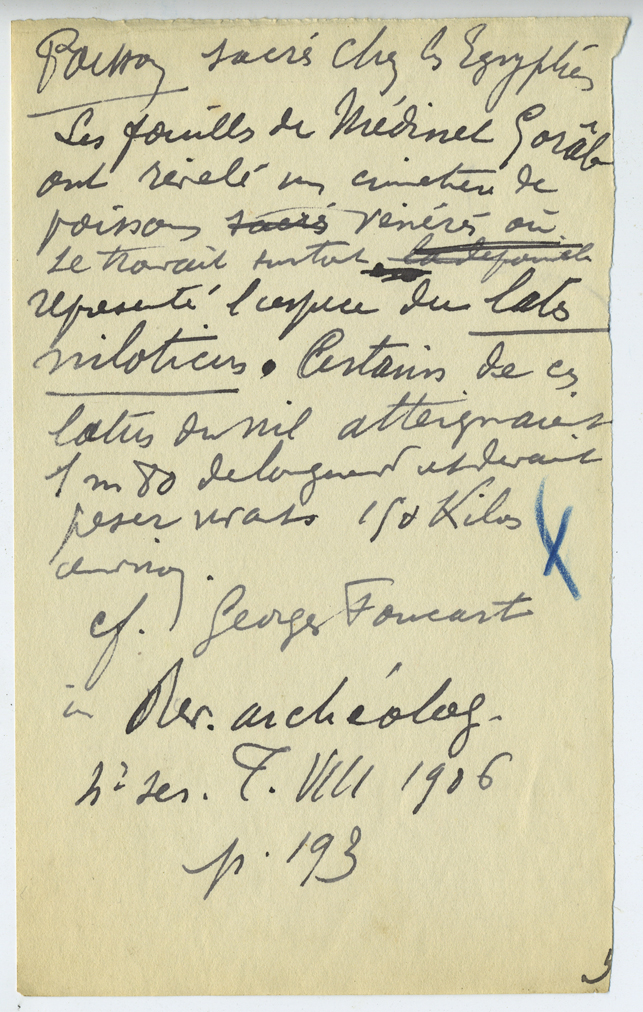 Poisson sacrés chez les Egyptiens
Les fouilles de Médinet Gorâb
ont révélé un cimetière de
poissons sacrés vénérés où
se trouvait surtout la dépouille
représenté l'espèce du lates
niloticus. Certains de ces
latus du nil atteignaient
1 m 80 de longueur et devait
peser vivants 150 Kilos
environ.
cf. Georges Foucart
in Rev. archéolog.
ser. T. VIII 1906
p. 193